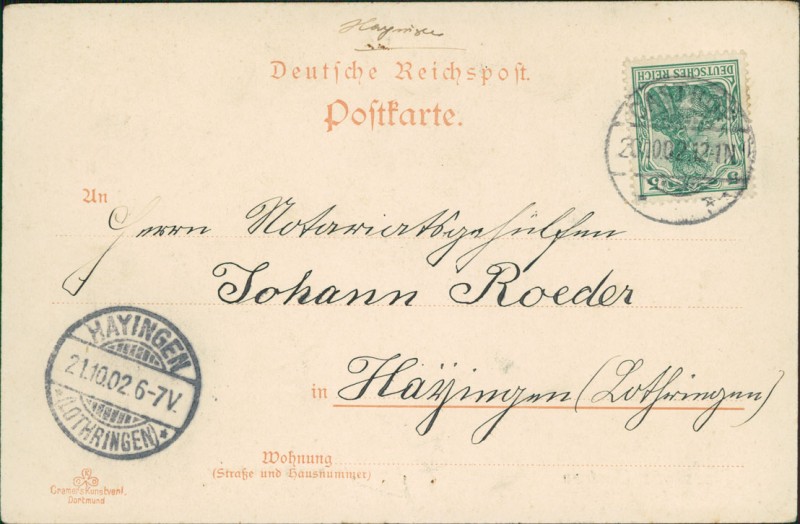 Hayingen
Deutsche Reichspost.
Postkarte.
DEUTSCHES REICH
5 5
20.10.02.12-1N
An
Herrn Notariatsgehülfen
Johann Roeder
in Hayingen (Lothringen)
HAYINGEN
21.10.02.6-7V.
*(LOTHRINGEN)*
Wohnung
(Straße und Hausnummer)
Cramers Kunstverl.
Dortmund